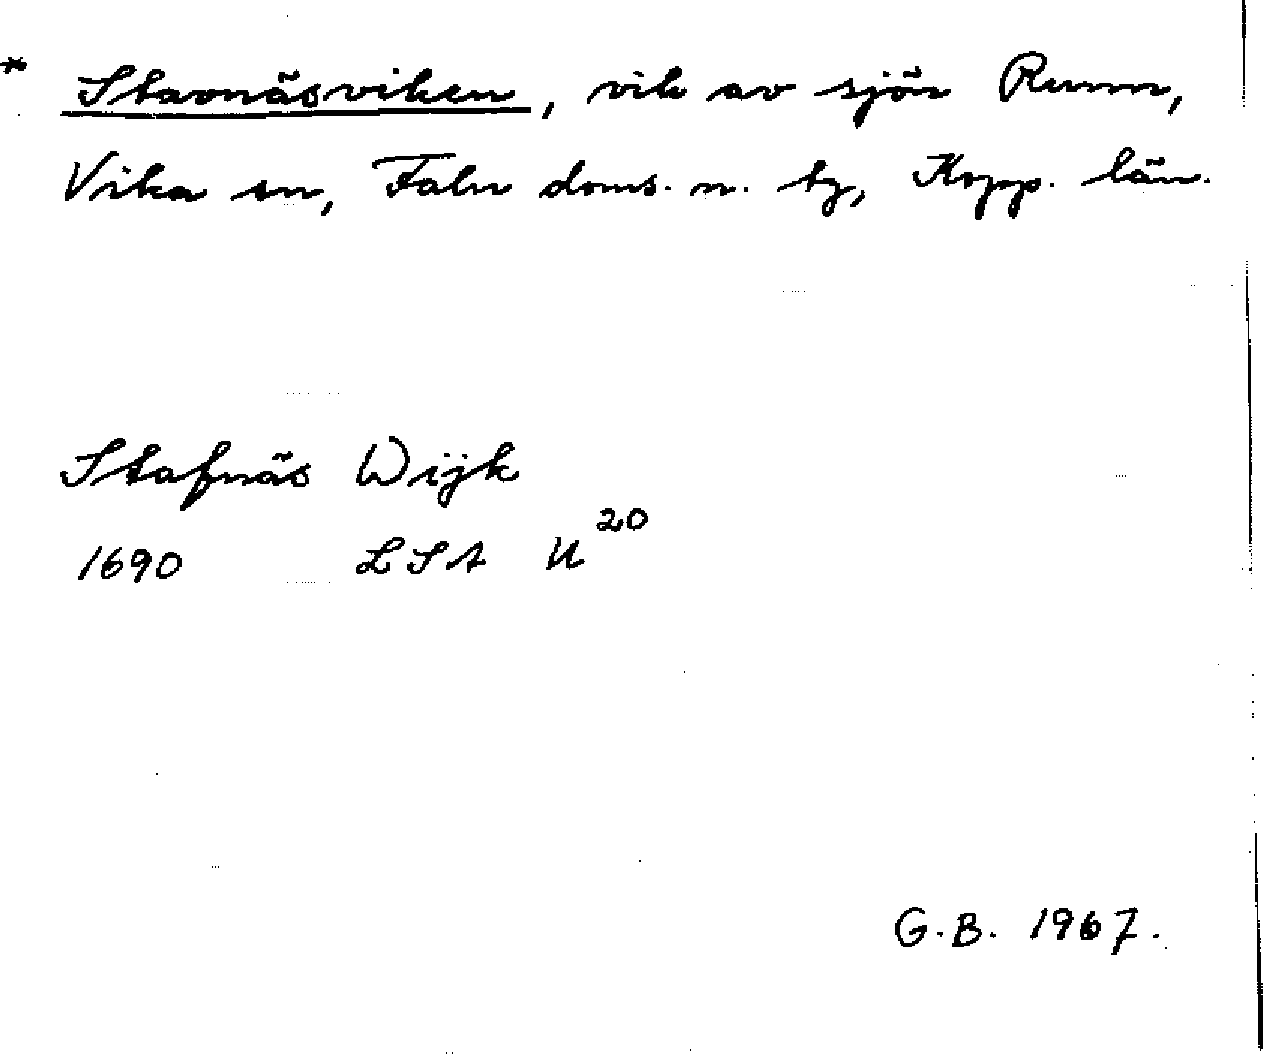 * Stavnäsviken, vik av sjön Runn,
Vika sn, Falu doms. n. tg, Kopp. län.
Stafnäs Wijk
1690 LSA U20
G.B. 1967.